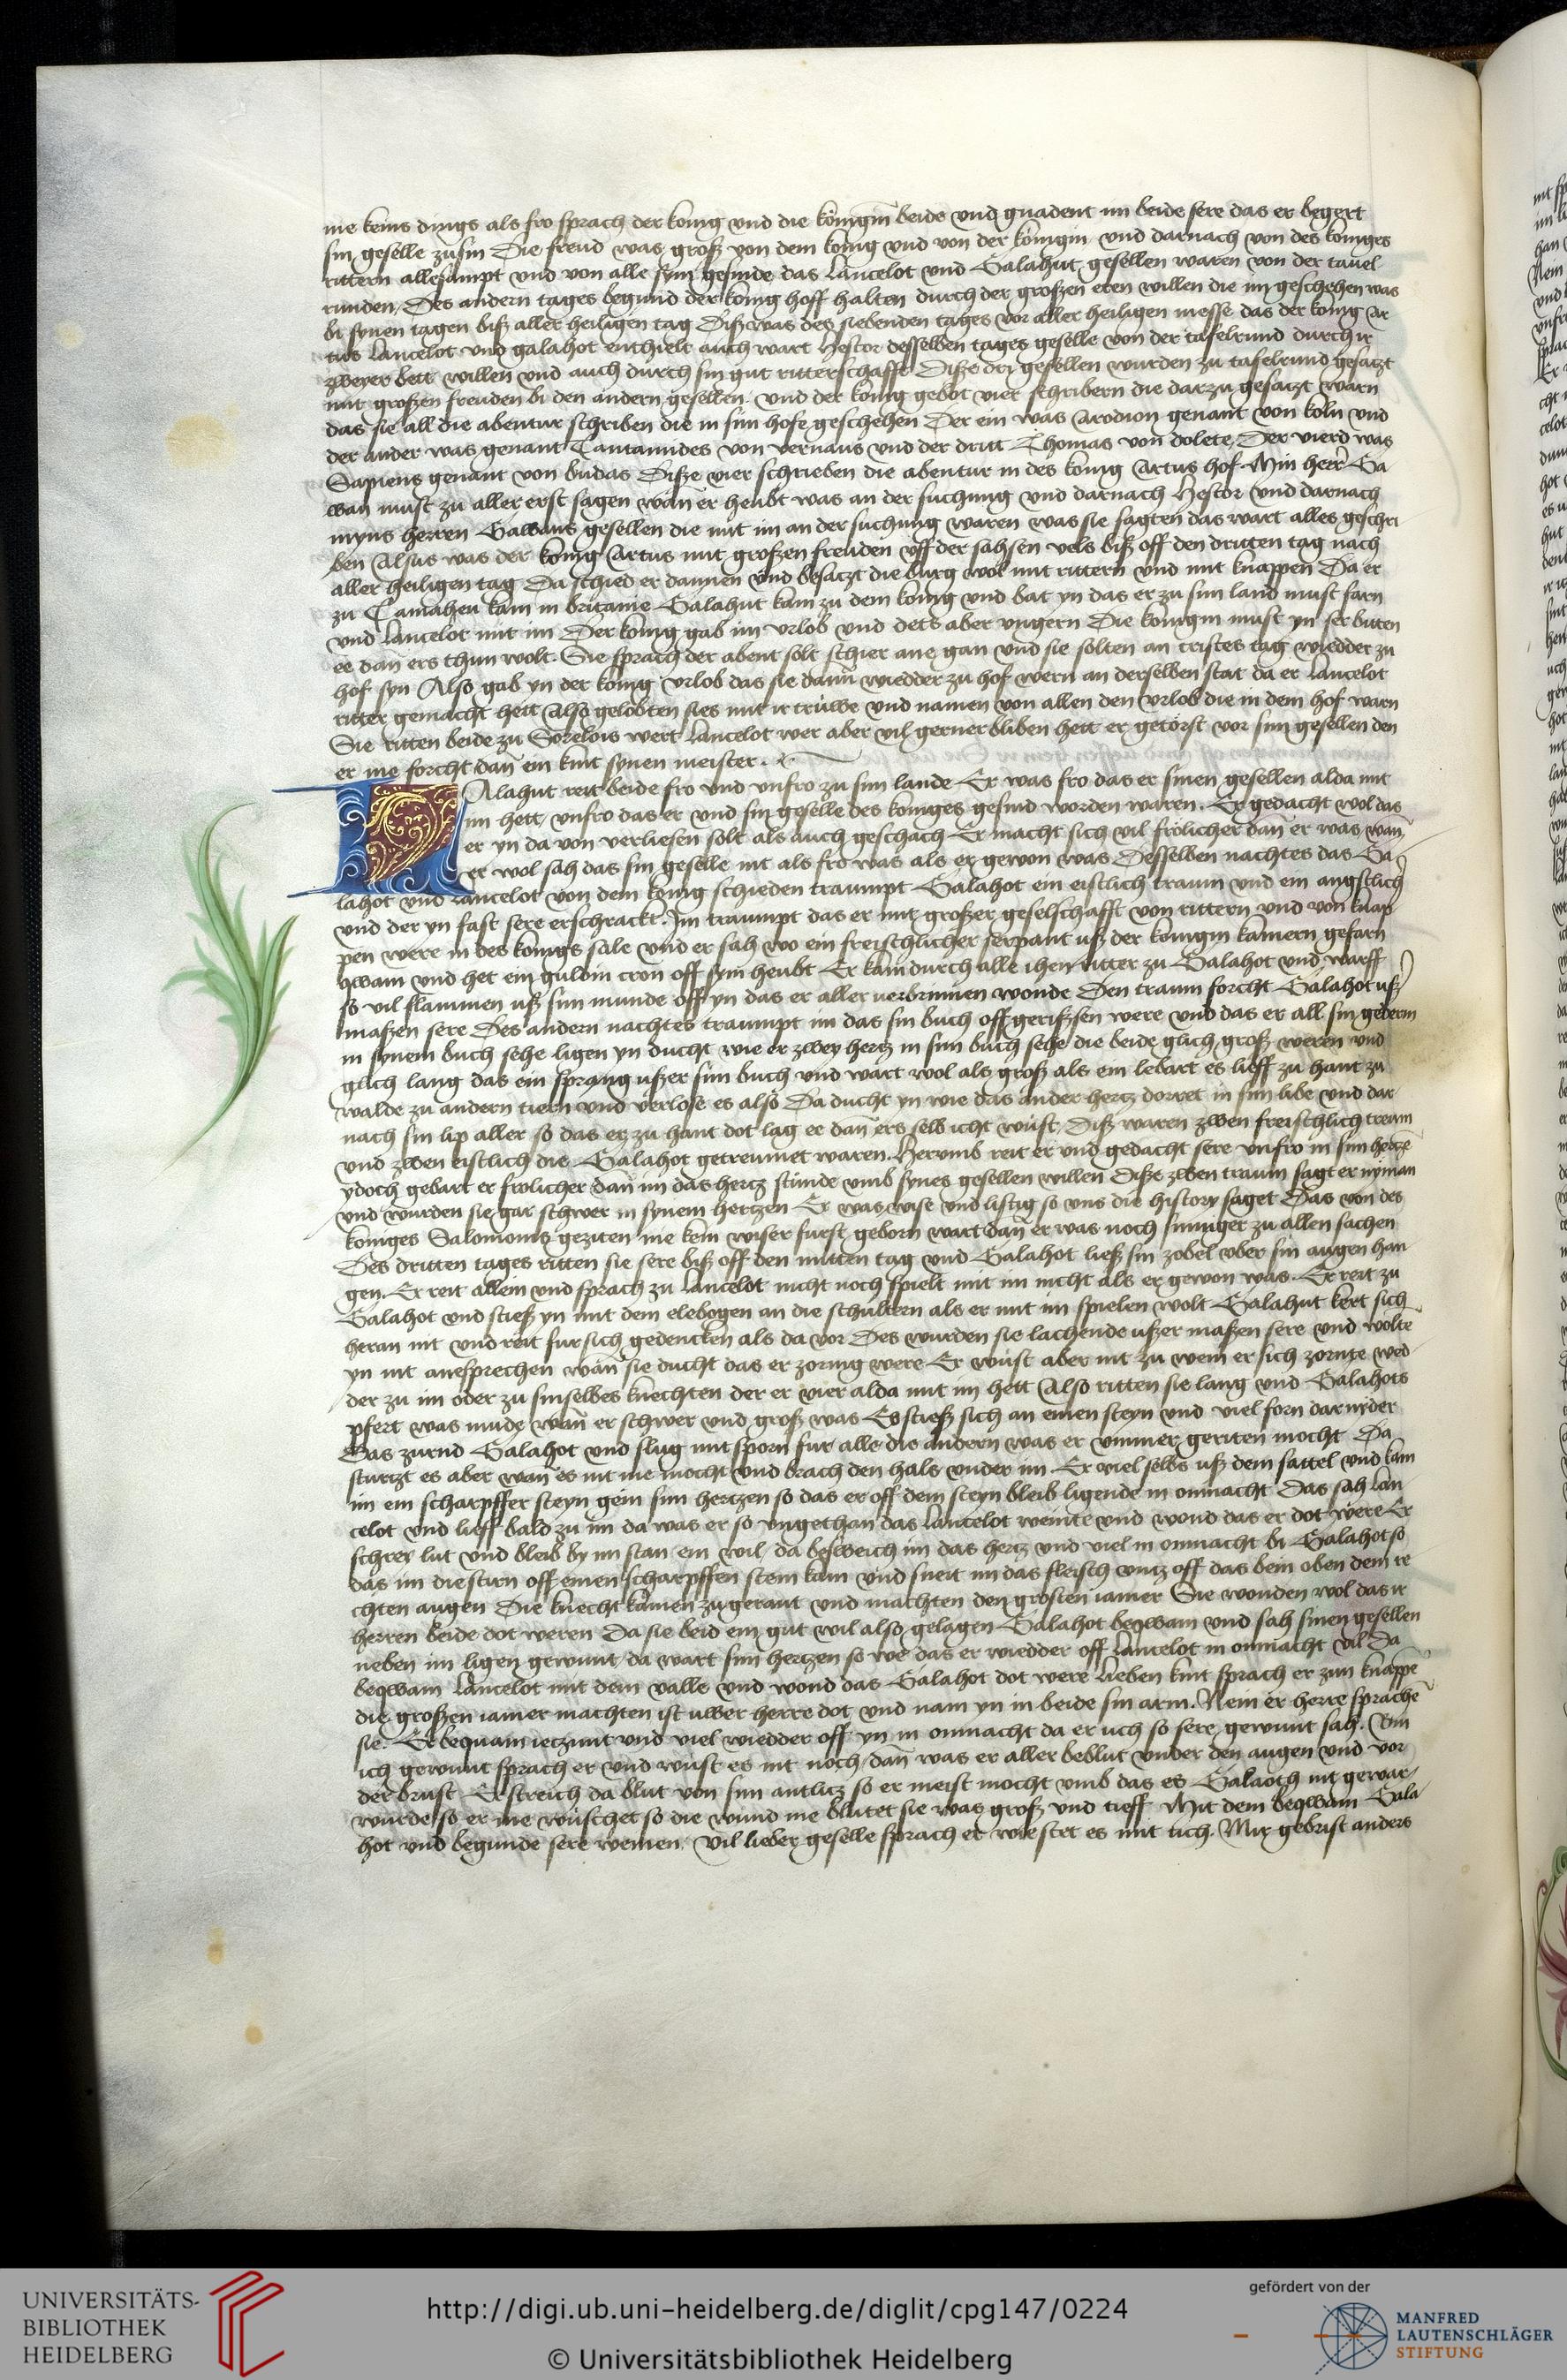 nie keins dings als fro sprach der konig vnd die königin beide vnd gnadent im beide sere das er begert
sin geselle zu sin Die freud was groß von dem konig vnd von der königin vnd darnach von des koniges
rittern allesampt vnd von alle sym gesinde das Lancelot vnd Galahut gesellen waren von der tauel
runden Des andern tages begund der konig hoff halten durch der großen eren willen die im geschehen was
bi synen tagen biß aller heiligen tag Diß was des siebenden tages vor aller heiligen messe das der konig Ar
tus Lancelot vnd galahot enthielt auch wart Hestor desselben tages geselle von der tafelrund durch ir
zweyer bett willen vnd auch durch sin gut ritterschafft Diße dry gesellen wurden zu tafelrund gesatzt
mit großen freuden bi den andern gesellen vnd der konig gebot vier schribern die darzu gesatzt warn
das sie all die abentur schriben die in sim hofe geschehen Der ein was Arodion genant von koln vnd
der ander was genant Tantamides von vernaus vnd der dritt Thomas von dolete Der vierd was
Sapiens genant von budas Diße vier schrieben die abentur in des konig Artus hof Min herr Ga
wan must zu aller erst sagen wan er heubt was an der suchung vnd darnach Hestor vnd darnach
myns herren Gawans gesellen die mit im an der suchung waren was sie sagten das wart alles geschri
ben Alsus was der konig Artus mit großen freuden vff der sahsen vels biß off den dritten tag nach
aller heiligen tag Da schied er dannen vnd besatzt die burg wol mit rittern vnd mit knappen Da er
zu Camaheu kam in britanie Galahut kam zu dem konig vnd bat yn das er zu sim land must farn
vnd Lancelot mit im Der konig gab im vrlob vnd dets aber vngern Die konigin must yn ser bitten
ee dan ers thun wolt Sie sprach der abent solt schier ane gan vnd sie solten an cristes tag wiedder zu
hof syn Also gab yn der konig vrlob das sie dann wiedder zu hof wern an derselben stat da er Lancelot
ritter gemacht hett Also gelobten sies mit ir trüwe vnd namen von allen den vrlob die in dem hof warn
Sie ritten beide zu Sorelois wert Lancelot wer aber vil gerner bliben hett er getorst vor sim gesellen den
er me forcht dan ein kint synen meister
Alahut reit beide fro vnd vnfro zu sim lande Er was fro das er sinen gesellen alda mit
im hett vnfro das er vnd sin geselle des koniges gesind worden waren Er gedacht wol das
er yn da von verliesen solt als auch geschach Er macht sich vil frölicher dan er was wan
er wol sah das sin geselle nit als fro was als er gewon was Desselben nachtes das Ga
lahot vnd Lancelot von dem konig schieden traumpt Galahot ein eistlich traum vnd ein angstlich
vnd der yn fast sere erschrackt Im traumpt das er mit großer geselschafft von rittern vnd von knap
pen were in des konigs sale vnd er sah wo ein freischlicher serpant uß der konigin kamern gefarn
qwam vnd het ein guldin cron off sym heubt Er kam durch alle ihen ritter zu Galahot vnd warff
so vil flammen uß sim munde off yn das er aller verbrinnen wonde Den traum forcht Galahot uß
maßen sere Des andern nachtes traumpt im das sin buch off gerißsen were vnd das er all sin gederm
in synem buch sehe ligen yn ducht wie er zwey hertz in sim buch sehe die beide glich groß weren vnd
glich lang das ein sprang ußer sim buch vnd wart wol als groß als ein lebart es lieff zu hant zu
walde zu andern tiern vnd verlose es also Da ducht yn wie das ander hertz dorret in sim libe vnd dar
nach sin lip aller so das er zu hant dot lag ee dan ers selb icht wust Diß waren zwen freischlich traum
vnd zwen eistlich die Galahot getreumet waren Herumb reit er vnd gedacht sere vnfro in sim hertze
ydoch gebart er frolicher dan im das hertz stunde vmb synes gesellen willen Diße zwen traum sagt er nyman
vnd wurden sie gar schwer in synem hertzen Er was wise vnd listig so vns die history saget Das von des
koniges Salomons geziten nie kein wiser furst geborn wart dan er was noch sinniger zu allen sachen
Des dritten tages ritten sie sere biß off den mitten tag vnd Galahot ließ sin zobel vber sin augen han
gen Er reit allein vnd sprach zu Lancelot nicht noch spielt mit im nicht als er gewon was Er reit zu
Galahot vnd stieß yn mit dem elebogen an die schultern als er mit im spielen wolt Galahut kert sich
heran nit vnd reit fur sich gedencken als da vor Des wurden sie lachende ußer maßen sere vnd wolte
yn nit anesprechen wan sie ducht das er zornig were Er wust aber nit zu wem er sich zornte wed
der zu im oder zu sinselbes knechten der er vier alda mit im hett Also ritten sie lang vnd Galahots
pfert was mude wan er schwer vnd groß was Es stieß sich an einen steyn vnd viel forn darnider
Das zurnd Galahot vnd slug mit sporn fur alle die andern was er vmmer geriten mocht Da
sturtzt es aber wan es nit me mocht vnd brach den hals vnder im Er viel selbs uß dem sattel vnd kam
im ein scharpffer steyn gein sim hertzen so das er off dem steyn bleib ligende in onmacht Das sah Lan
celot vnd lieff bald zu im da was er so vngethan das Lancelot weinte vnd wond das er dot were Er
schrey lut vnd bleib by im stan ein wil da besweich im das hertz vnd viel in onmacht bi Galahot so
das im die stirn off einen scharpffen stein kam vnd sneit im das fleisch vntz off das bein oben dem re
chten augen Die knecht kamen zu gerant vnd machten den grosten iamer Sie wonden wol das ir
herren beide dot weren Da sie beid ein gut wil also gelagen Galahot beqwam vnd sah sinen gesellen
neben im ligen gewunt da wart sim hertzen so we das er wiedder off Lancelot in onmacht vil Da
beqwam Lancelot mit dem valle vnd wond das Galahot dot were Lieben kint sprach er zun knappe
die großen iamer machten ist uwer herre dot vnd nam yn in beide sin arm Nein er herre sprache
sie Er bequam ieczunt vnd viel wiedder off yn in onmacht da er uch so sere gewunt sah Bin
ich gewunt sprach er vnd wust es nit noch dan was er aller beblut vnder den augen vnd vor
der brust Er streich da blut von sim antlitz so er meist mocht vmb das es Galaoth nit gewar
wurde so er me wuschet so die wund me blutet sie was groß vnd tieff Mit dem beqwam Gala
hot vnd begunde sere weinen Vil lieber geselle sprach er wie stet es mit uch Mir gebrist anders
UNIVERSITÄTS-
BIBLIOTHEK
HEIDELBERG
http://digi.ub.uni-heidelberg.de/diglit/cpg147/0224
© Universitätsbibliothek Heidelberg
gefördert von der
MANFRED
LAUTENSCHLÄGER
STIFTUNG